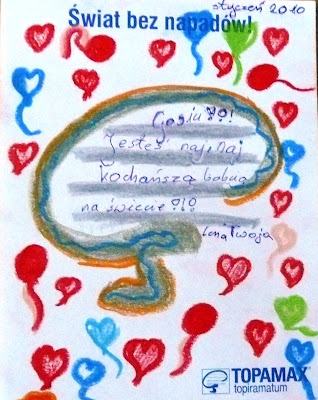 styczeń 2010
Świat bez napadów!
Gosiu!?!
Jesteś naj, naj
kochańszą babcią
na świecie!?!
Twoja
TOPAMAX®
topiramatum